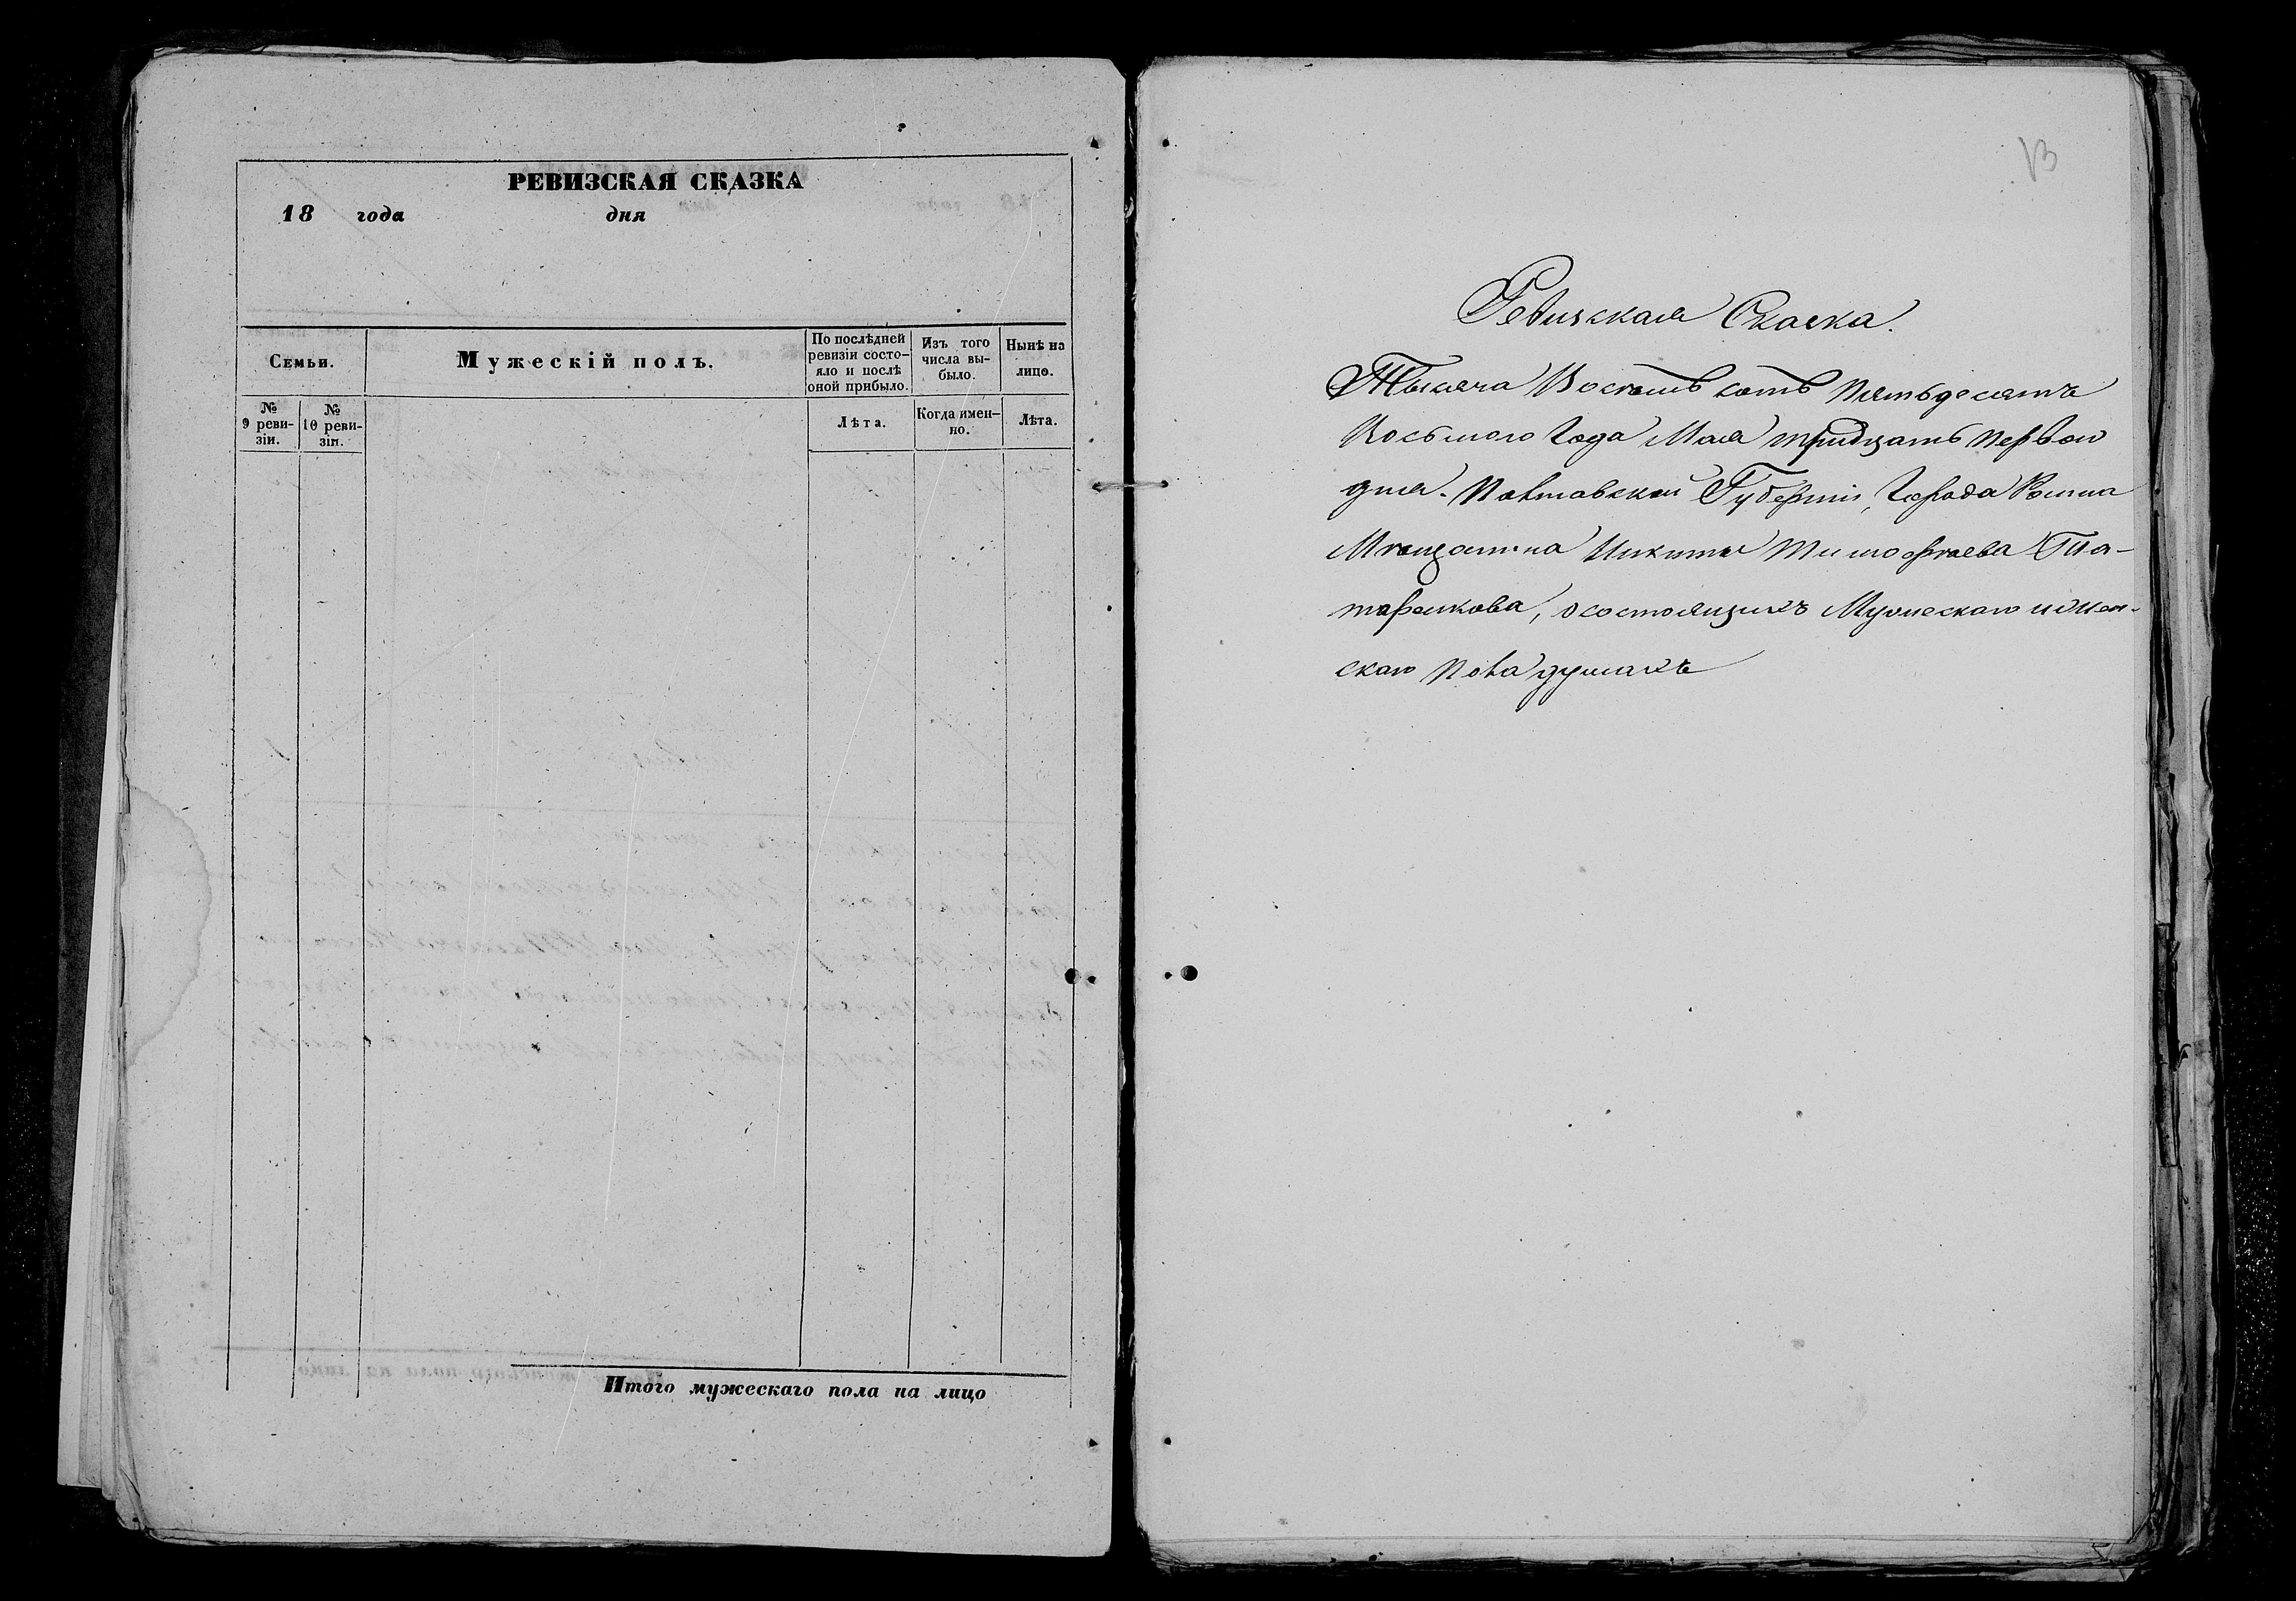 РЕВИЗСКАЯ СКАЗКА
18 года дня
Семьи.
Мужескій полъ.
По послѣдней ревизіи состо-яло и послѣ оной прибыло.
Изъ того числа вы-было.
Нынѣ на лицо.
№ 9 реви-зіи.
№ 10 реви-зіи.
Лѣта.
Когда имен-но.
Лѣта.
Итого мужескаго пола на лицо
13
Ревизская Сказка.
Тысяча Восемь сотъ Пятьдесятъ
Восьмого Года Мая тридцать Первого
дня. Полтавской Губерніи, Города Ромна
Мещанина Никиты Тимофеева
, о состоящихъ Мужескаго и жен-
скаго Пола душахъ